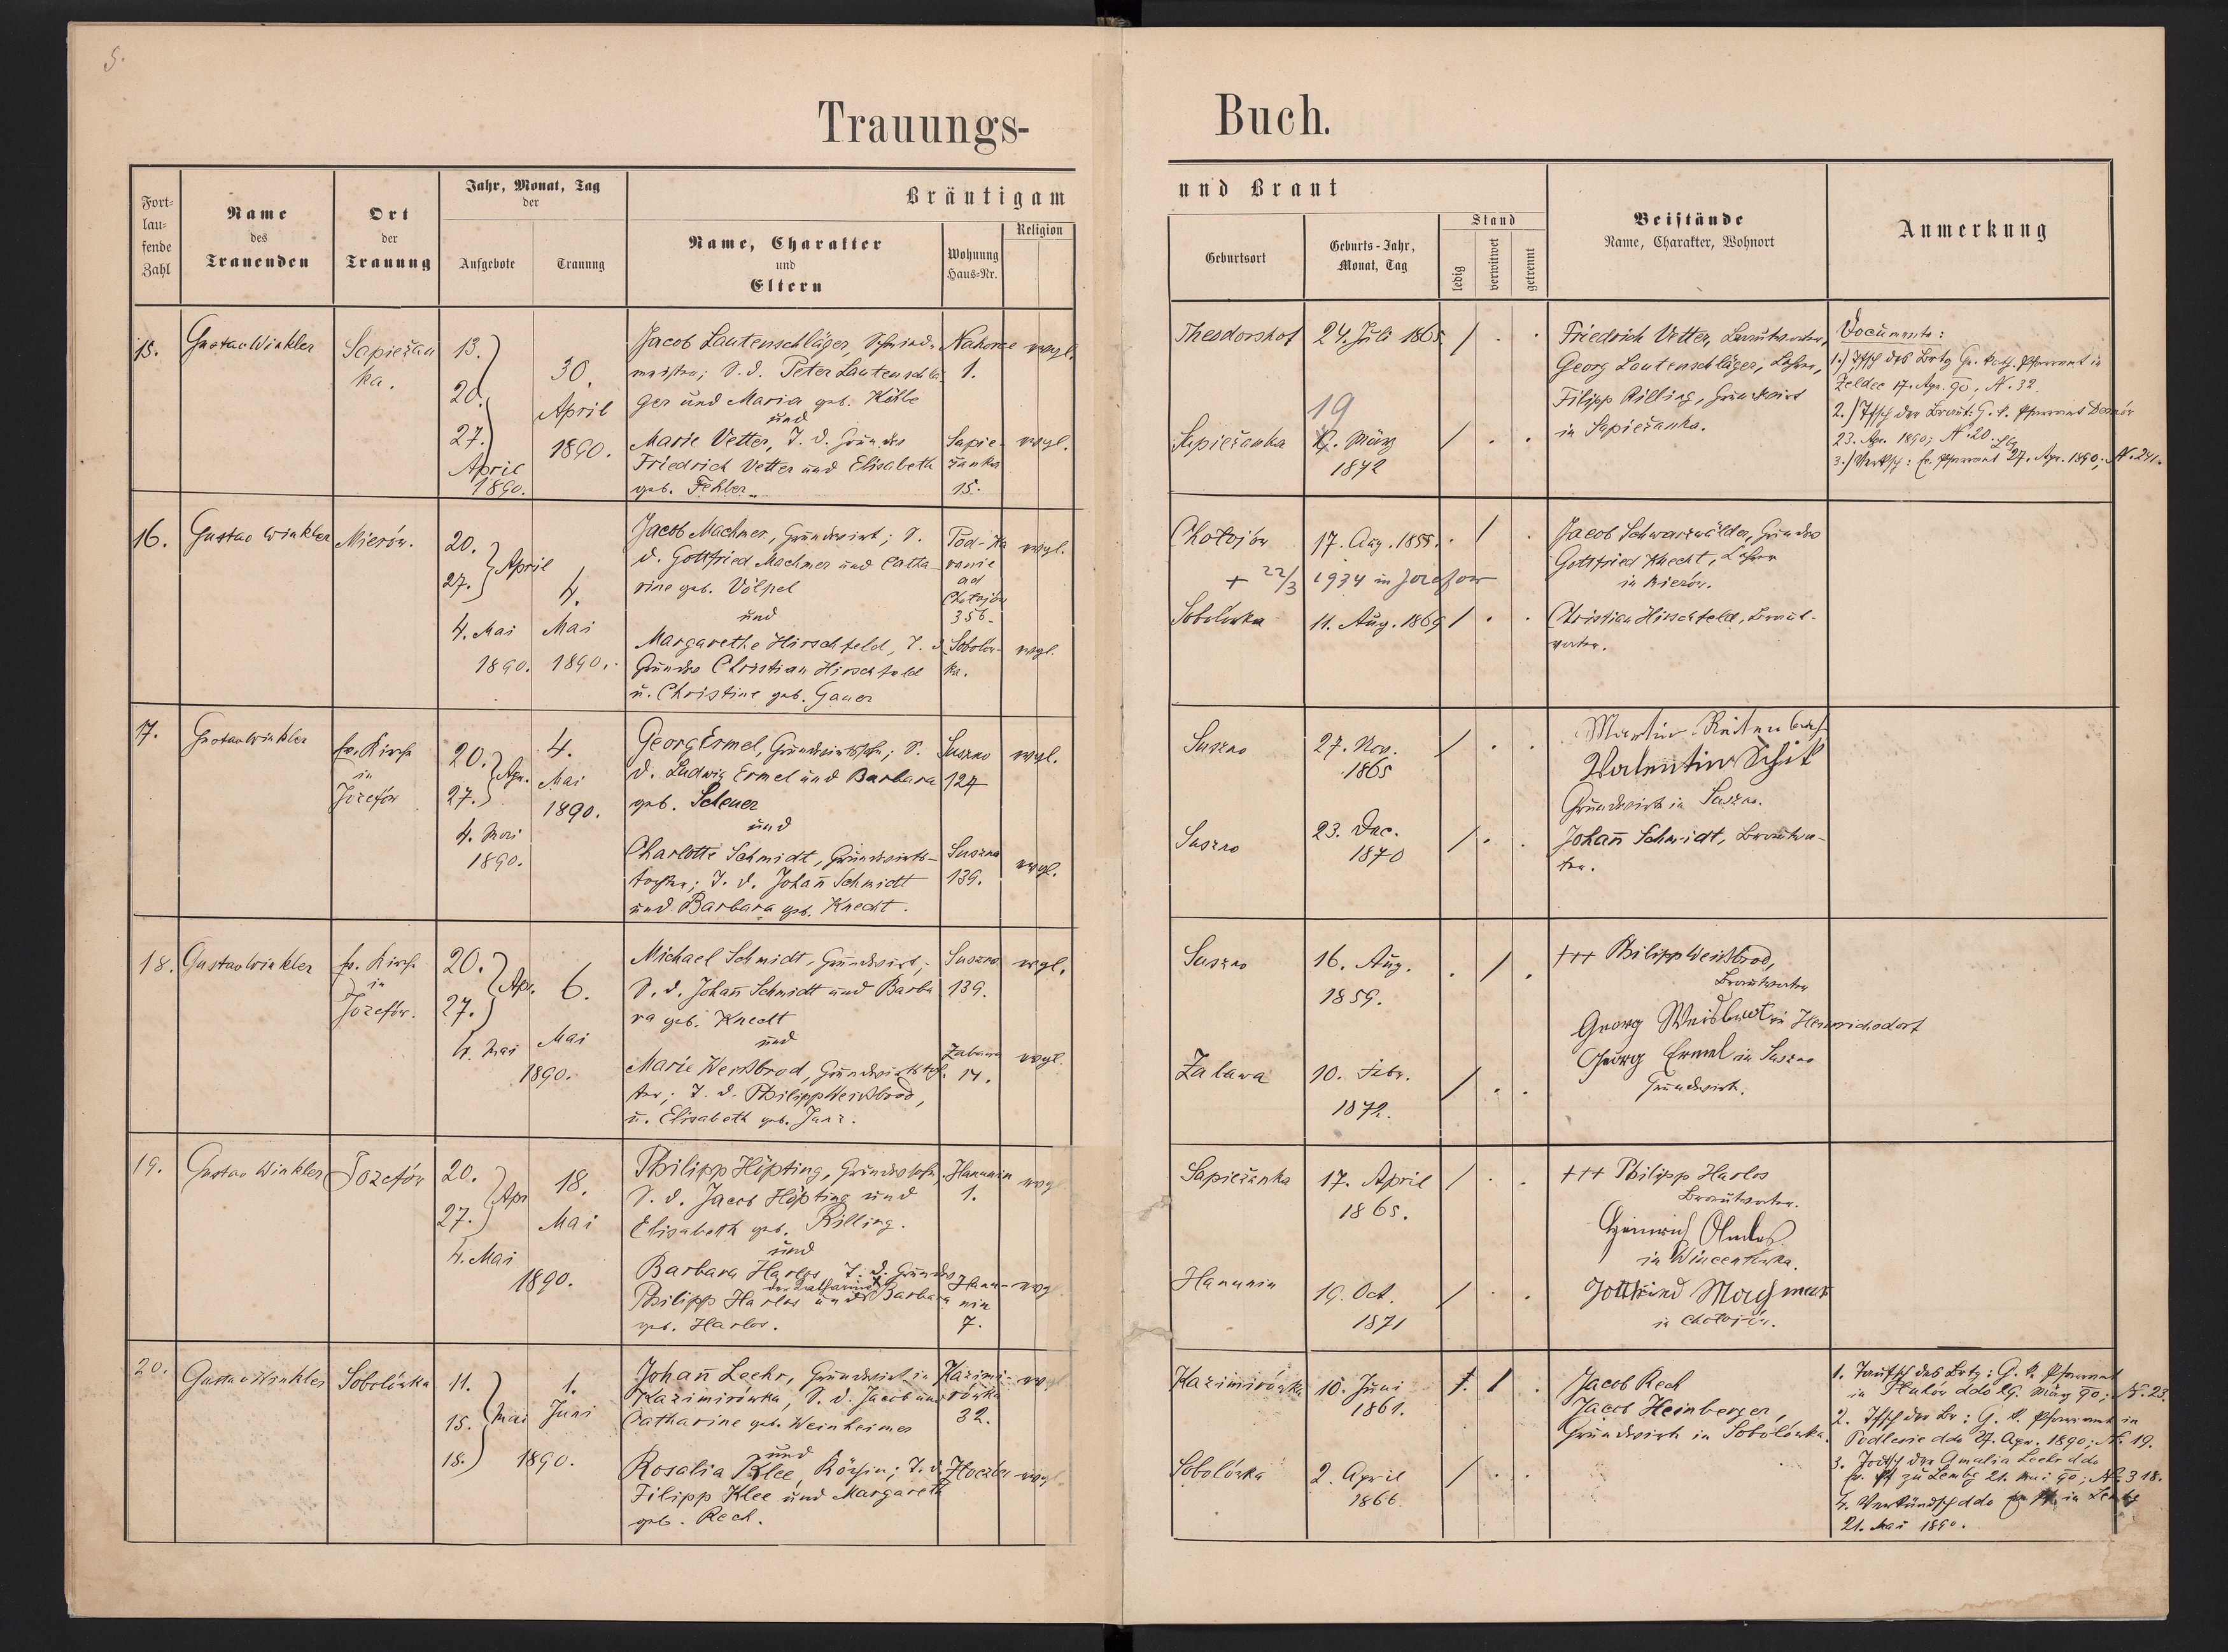 5.
Trauungs-
Buch.
Fort-
lau-
fende
Zahl
Name
des
Trauenden
Ort
der
Trauung
Jahr, Monat, Tag
der
Aufgebote
Trauung
Bräutigam
Name, Charakter
und
Eltern
Wohnung
Haus-Nr.
Religion
und Braut
Geburtsort
Geburts-Jahr,
Monat, Tag
Stand
ledig
verwitwet
getrennt
Beistände
Name, Charakter, Wohnort
Anmerkung
15.
Gustav Winkler
Sapiežan
ka.
13.
20.
27.
April
1890.
30.
April
1890.
Jacob Lautenschläger, Schmied-
meister; S. d. Peter Lautenschlä-
ger und Maria geb. Kölle
und
Marie Vetter, T. d. Grundw
Friedrich Vetter und Elisabeth
geb. Fehler
Nahorce
1.
evgl.
Sapie-
žanka
15.
evgl.
Theodorshof
24. Juli 1865
/ . .
Sapiežanka
19
März
1872
/ . .
Friedrich Vetter, Brautvater,
Georg Lautenschläger, Lehrer,
Filipp Rilling, Grundwirt
in Sapiežanka.
Documente:
1.) Tfsch des Brtg Gr. kath. Pfarramt in
Želdec 17. Apr. 90, N. 32.
2.) Tfsch der Braut: G. k. Pfarramt
23. Apr. 1890; N. 20.
3.) Verksch: ev. Pfarramt Lbg 27. Apr. 1890; N. 241.
16.
Gustav Winkler
Mierów.
20.
27.
April
4. Mai
1890.
4.
Mai
1890.
Jacob Machmer, Grundwirt; S.
d. Gottfried Machmer und Catha-
rine geb. Völpel
und
Margarethe Hirschfeld, T. d.
Grundw Christian Hirschfeld
u. Christine geb. Gauer
Pod-Ka
ad
Chołojów
356.
evgl.
Sobolów-
ka.
evgl.
Chołojów
17. Aug. 1855.
. / .
+ 22/3 1934 in Josefow
Sobolówka
11. Aug. 1869
/ . .
Jacob Schwarzwälder, Grundw
Gottfried Knecht, Lehrer
in Mierów.
Christian Hirschfeld, Braut-
vater.
17.
Gustav Winkler
ev. Kirche
in
Józefów
20.
27.
Apr.
4. Mai
1890.
4.
Mai
1890.
Georg Ermel, Grundwirtssohn; S.
d. Ludwig Ermel und Barbara
geb. Scheuer
und
Charlotte Schmidt, Grundwirts-
tochter; T. d. Johañ Schmidt
und Barbara geb. Knecht.
Suszno
124
evgl.
Suszno
139.
evgl.
Suszno
27. Nov.
1865
/ . .
Suszno
23. Dec.
1870
/ . .
Martin Reitenbach
Valentin Schik
Grundwirte in Suszno.
Johañ Schmidt, Brautva-
ter.
18.
Gustav Winkler
ev. Kirche
in
Józefów.
20.
27.
Apr.
4. Mai
6.
Mai
1890.
Michael Schmidt, Grundwirt;
S. d. Johañ Schmidt und Barba
ra geb. Knecht
und
Marie Weißbrod, Grundwirtstoch-
ter; T. d. Philipp Weißbrod,
u. Elisabeth geb. Janz.
Suszno
139.
evgl.
Zabawa
14.
evgl.
Suszno
16. Aug.
1859.
. / .
Zabawa
10. Febr.
1872.
/ . .
+++ Philipp Weißbrod,
Brautvater
Georg Weisbrot in Heinrichsdorf
Georg Ermel in Suszno
Grundwirte.
19.
Gustav Winkler
Józefów
20.
27.
Apr
4. Mai
18.
Mai
1890.
Philipp Höpting, Grundwssohn,
S. d. Jacob Höpting und
Elisabeth geb. Rilling.
und
Barbara Harlos, T. d. Grundw
der Katharina
Philipp Harlos und Barbara
geb. Harlos.
Hanunin
1.
evg
Hanu-
nin
7.
evg
Sapiežanka
17. April
1865.
/ . .
Hanunin
19. Oct.
1871
/ . .
+++ Philipp Harlos
Brautvater.
Heinrich
in Wincentówka.
Gottfried Machmer
in Chołojów.
20.
Gustav Winkler
Sobolówka
11.
15.
18.
Mai
1.
Juni
1890.
Johañ Leehr, Grundwirt in
Kazimirówka, S. d. Jacob und
Catharine geb. Weinheimer
und
Rosalia Klee, Köchin; T. d.
Filipp Klee und Margareth
geb. Rech.
Kazimi-
rówka
32.
evgl
evgl
Kazimirówka
10. Juni
1861.
/ .
Sobolówka
2. April
1866.
/ . .
Jacob Rech
Jacob Heinberger,
Grundwirte in Sobolówka.
1. Taufsch des Brtg: G. k. Pfarramt
in ddo 29. März 90; N. 23.
2. Tfsch der Br: G. k. Pfarramt in
Podlesie ddo 27. Apr. 1890; N. 19.
3. Todtsch der Amalia Leehr ddo
ev. Pf zu Lembg 21. Mai 90; N. 318.
4. Verkündsch ddo ev. Pf. in Lembg
21. Mai 1890.